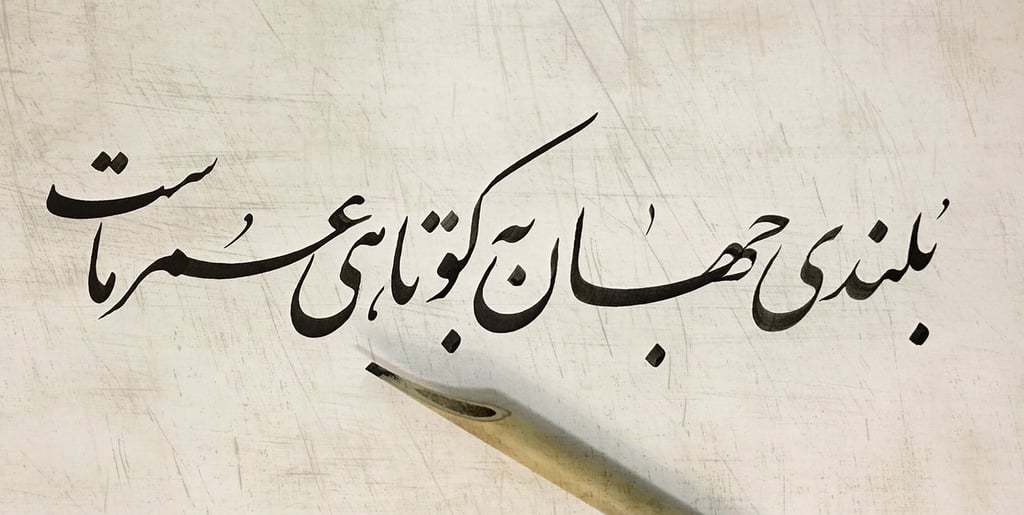 بُلندی جهان به کوتاهی عُمر ماست